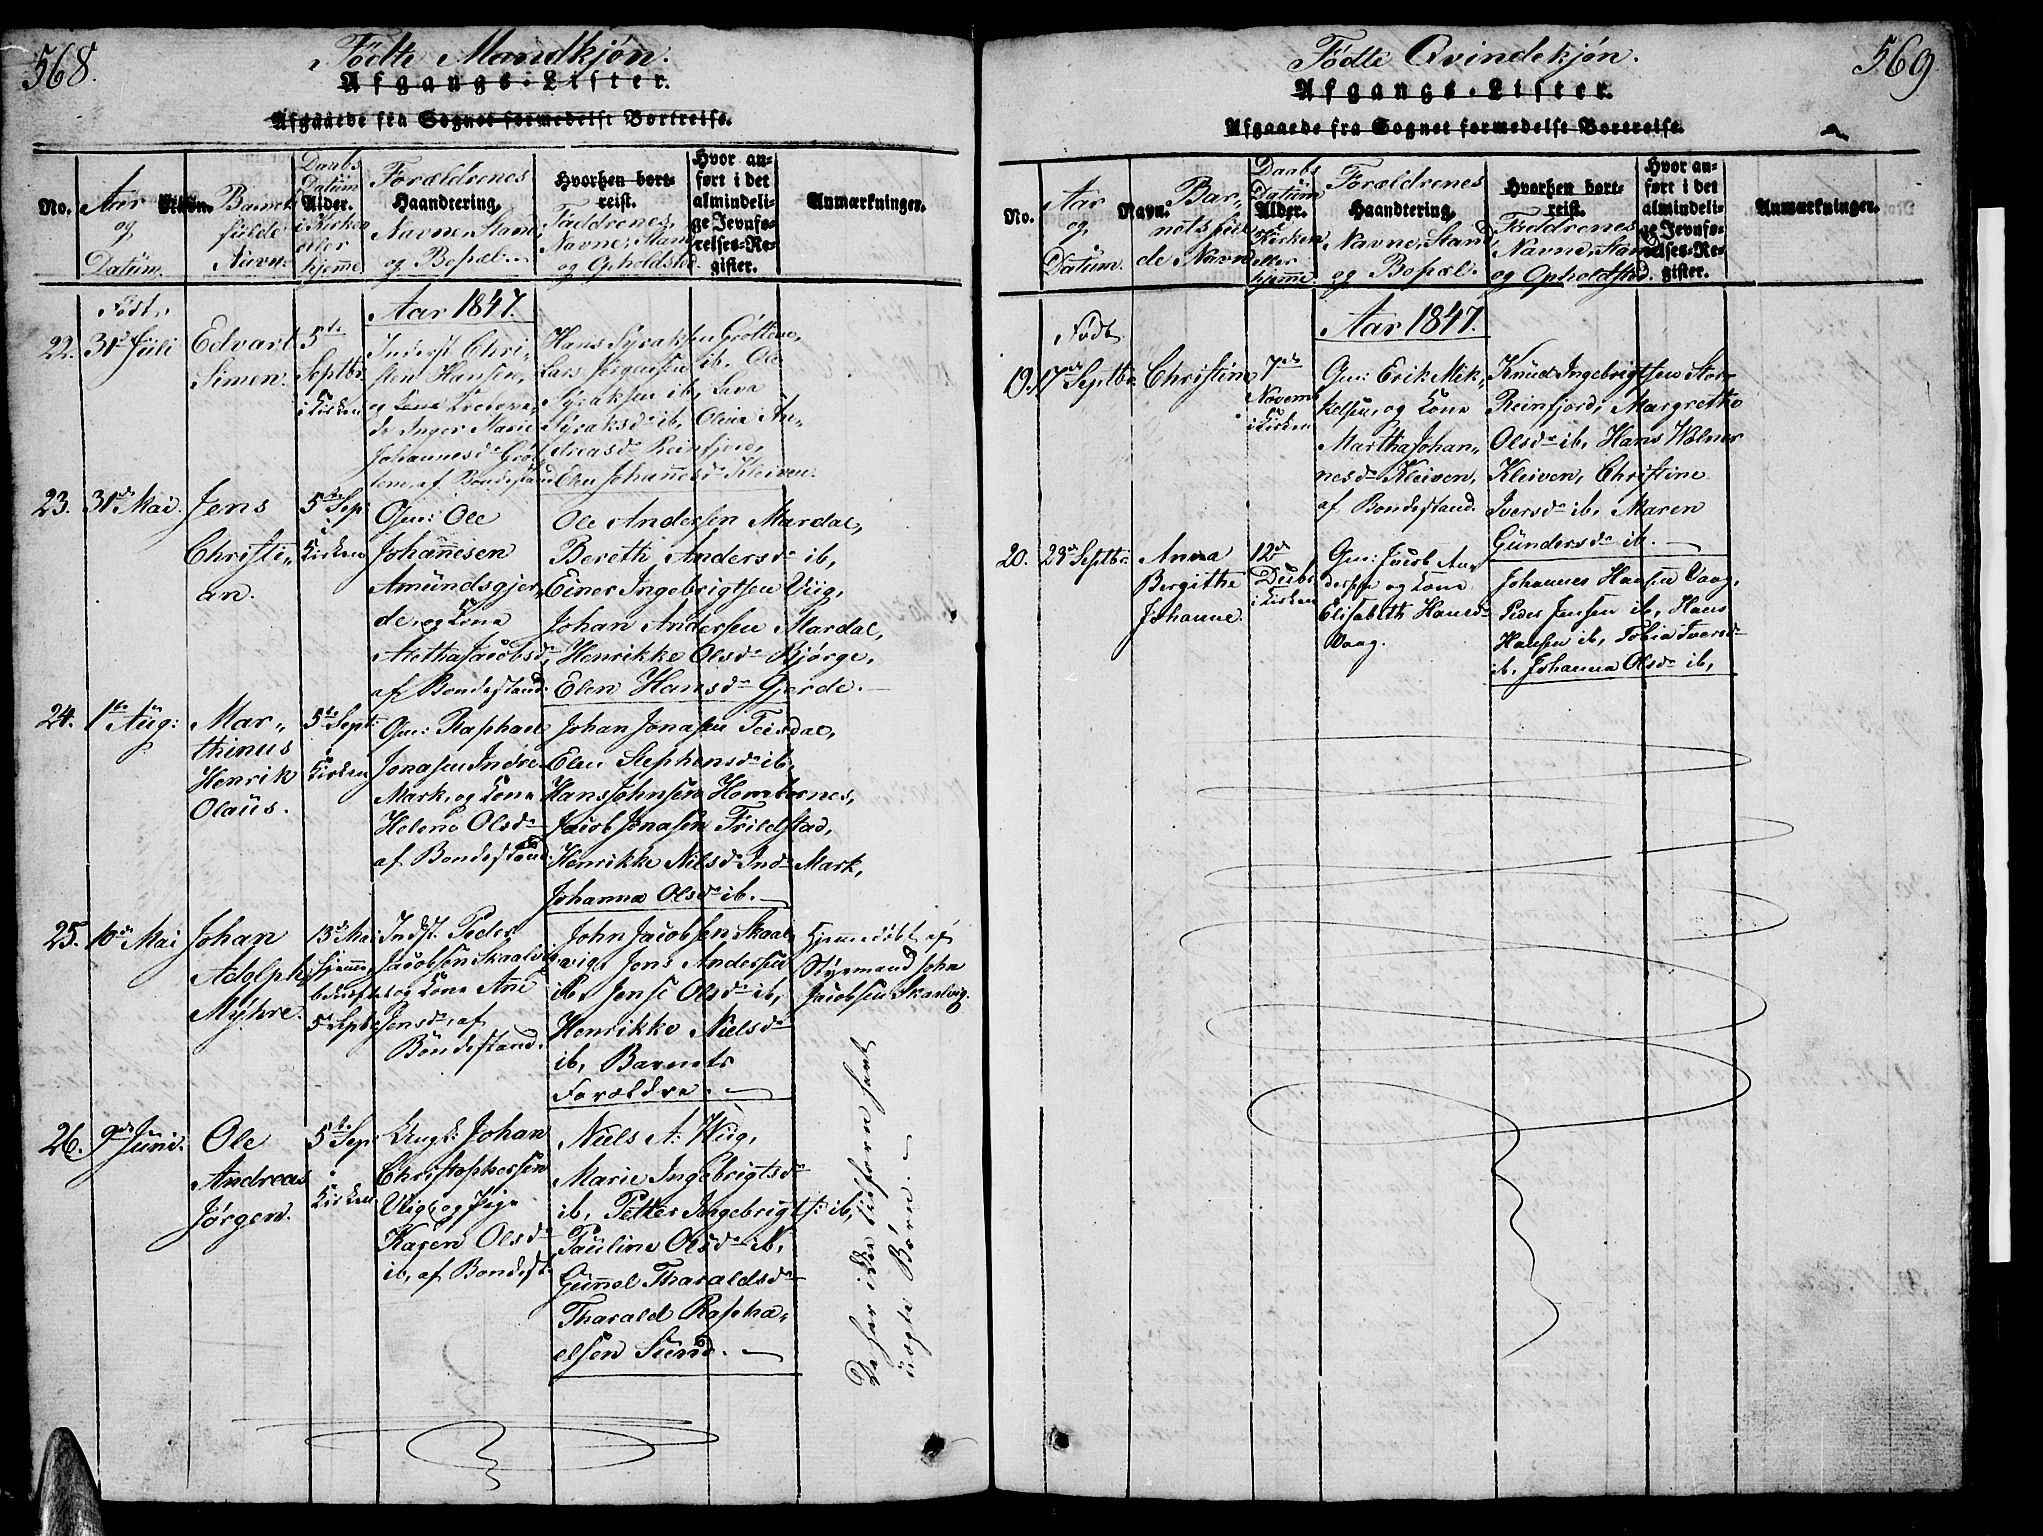 568.
Födte Mandkjøn.
Afgangs-Lister.
Afgaaede fra Sognet formedelst Bortreise.
No.
Aar og Datüm.
Barnets fulde Navn.
Daabs Datüm i Kirken eller hjemme
Alder.
Forældrenes
Haandtering.
Navne, Stand og Bopæl.
Hvorhen bortreist.
Faddrenes Navne, Stand og Opholdsted.
Hvor anført i det almindelige Jevnførelses-Register.
Anmærkninger.
Født.
Aar 1847.
22. 31te Jüli
Edvart
Simen.
5te
Septbr
i Kirken
Inderst Chri-
sten Hansen,
Inger Marie
Johannesdr
af Bondestand
Hans Syraksen Grøttem,
Lars Jørgensen ib, Ole
Syraksen ib,
Syraksdr ib, Olina An-
dreasdr Reinfjord,
Elen Johannesdr Kleiven.
23. 31te Mai.
Jens
Christi-
an.
5te Sep:
i
Kirken
Gm: Ole
Johannesen
Amündsgjer-
de, og Kona
Alethe Jacobsdr,
af Bondestand.
Ole Andersen Mardal,
Bereth Andersdr ib,
Einer Ingebrigtsen Viig,
Johan Andersen Mardal,
Henrikke Olsdr Bjørge,
Elen Hansdr Gjerde.
24. 1te Aüg:
Mar-
thinus
Henrik
Olaüs.
5te Sept:
i
Kirken
Gm: Raphael
Jonasen Indre
Mark, og Kona
Helene Olsdr
af Bondestand
Johan Jonasen Teisdal,
Elen Stephensdr ib,
Hans Johnsen Hombornes,
Jacob Jonasen Trildstad,
Henrikke Nilsdr Indr Mark,
Johanna Olsdr ib.
25. 10de Mai
Johan
Adolph
Myhre.
13de Mai
hjemme,
bekræftet
5te Septbr
Indst. Peder
Jacobsen Skaalvig
og Kona Ane
Jensdr, af
Bondestand.
John Jacobsen Skaal-
vig, Jens Andersen
ib, Jense Olsdr ib,
Henrikke Nielsdr
ib, Barnets
Forældre.
Hjemmedøbt af
Styrmand John
Jacobsen Skaalvig.
26. 9de Juni.
Ole
Andreas
Jørgen.
5te Sep:
i
Kirken
Ungk: Johan
Christophersen
Viig, og Pige
Karen Olsdr
ib, af Bondest.
Niels A: Wiig,
Marie Ingebrigtsdr
ib, Petter Ingebrigts: ib,
Pauline Olsdr ib,
Günnel Tharaldsdr
Tharald Rapha-
elsen Sund.
De har ikke tilforn havt
uægte Børn.
569
Födte Qvindekjøn.
Afgangs-Lister.
Afgaaede fra Sognet formedelst Bortreise.
No.
Aar og Datum.
Navn.
Barnets fulde Navn
Daabs Datüm i Kirken eller hjemme.
Alder.
Forældrenes
Haandtering.
Navne, Stand og Bopæl.
Hvorhen bortreist.
Faddrenes Navne, Stand og Opholdsted.
Hvor anført i det almindelige Jevnførelses-Register.
Anmærkninger.
Født
Aar 1847.
19. 17de Septbr.
Christine
7de
Novemb
i Kirken
Gm: Erik Mik-
kelsen, og Kona
Martha Johan-
nesdr Kleiven,
af Bondestand.
Knüd Ingebrigtsen Stor
Reinfjord, Margrethe
Olsdr ib, Hans Wolner
Kleiven, Christine
Iversdr ib, Maren
Gündersdr ib.
20. 28de Septbr.
Anna
Bergithe
Johanne.
12te
Decbr
i Kirken
Gm: Jacob An-
dersen og Kona
Elisabeth Hansdr
Vaag.
Johannes Hansen Vaag,
Peder Jensen ib, Hans
Hansen ib, Tobia Iversdr
ib, Johanna Olsdr ib,